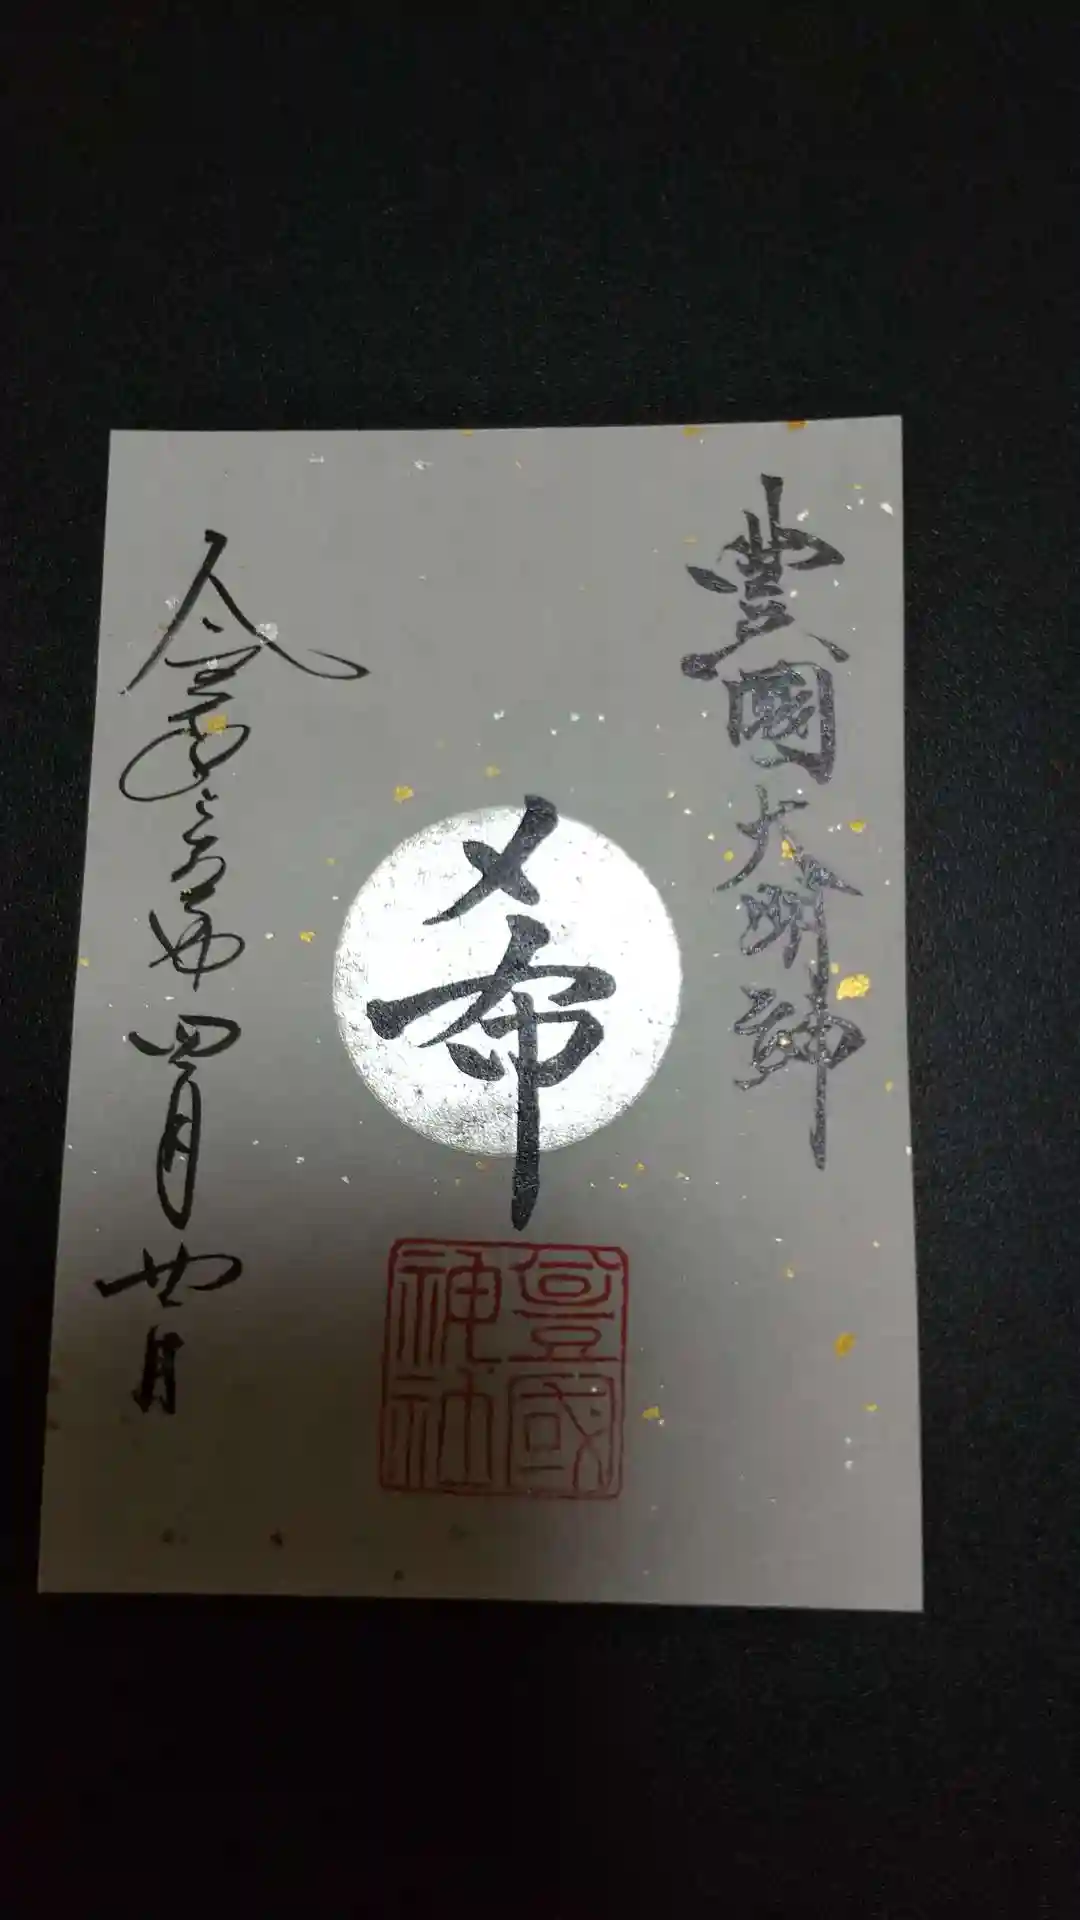 豊國大明神
希
豊國
神社
令和六年四月廿日